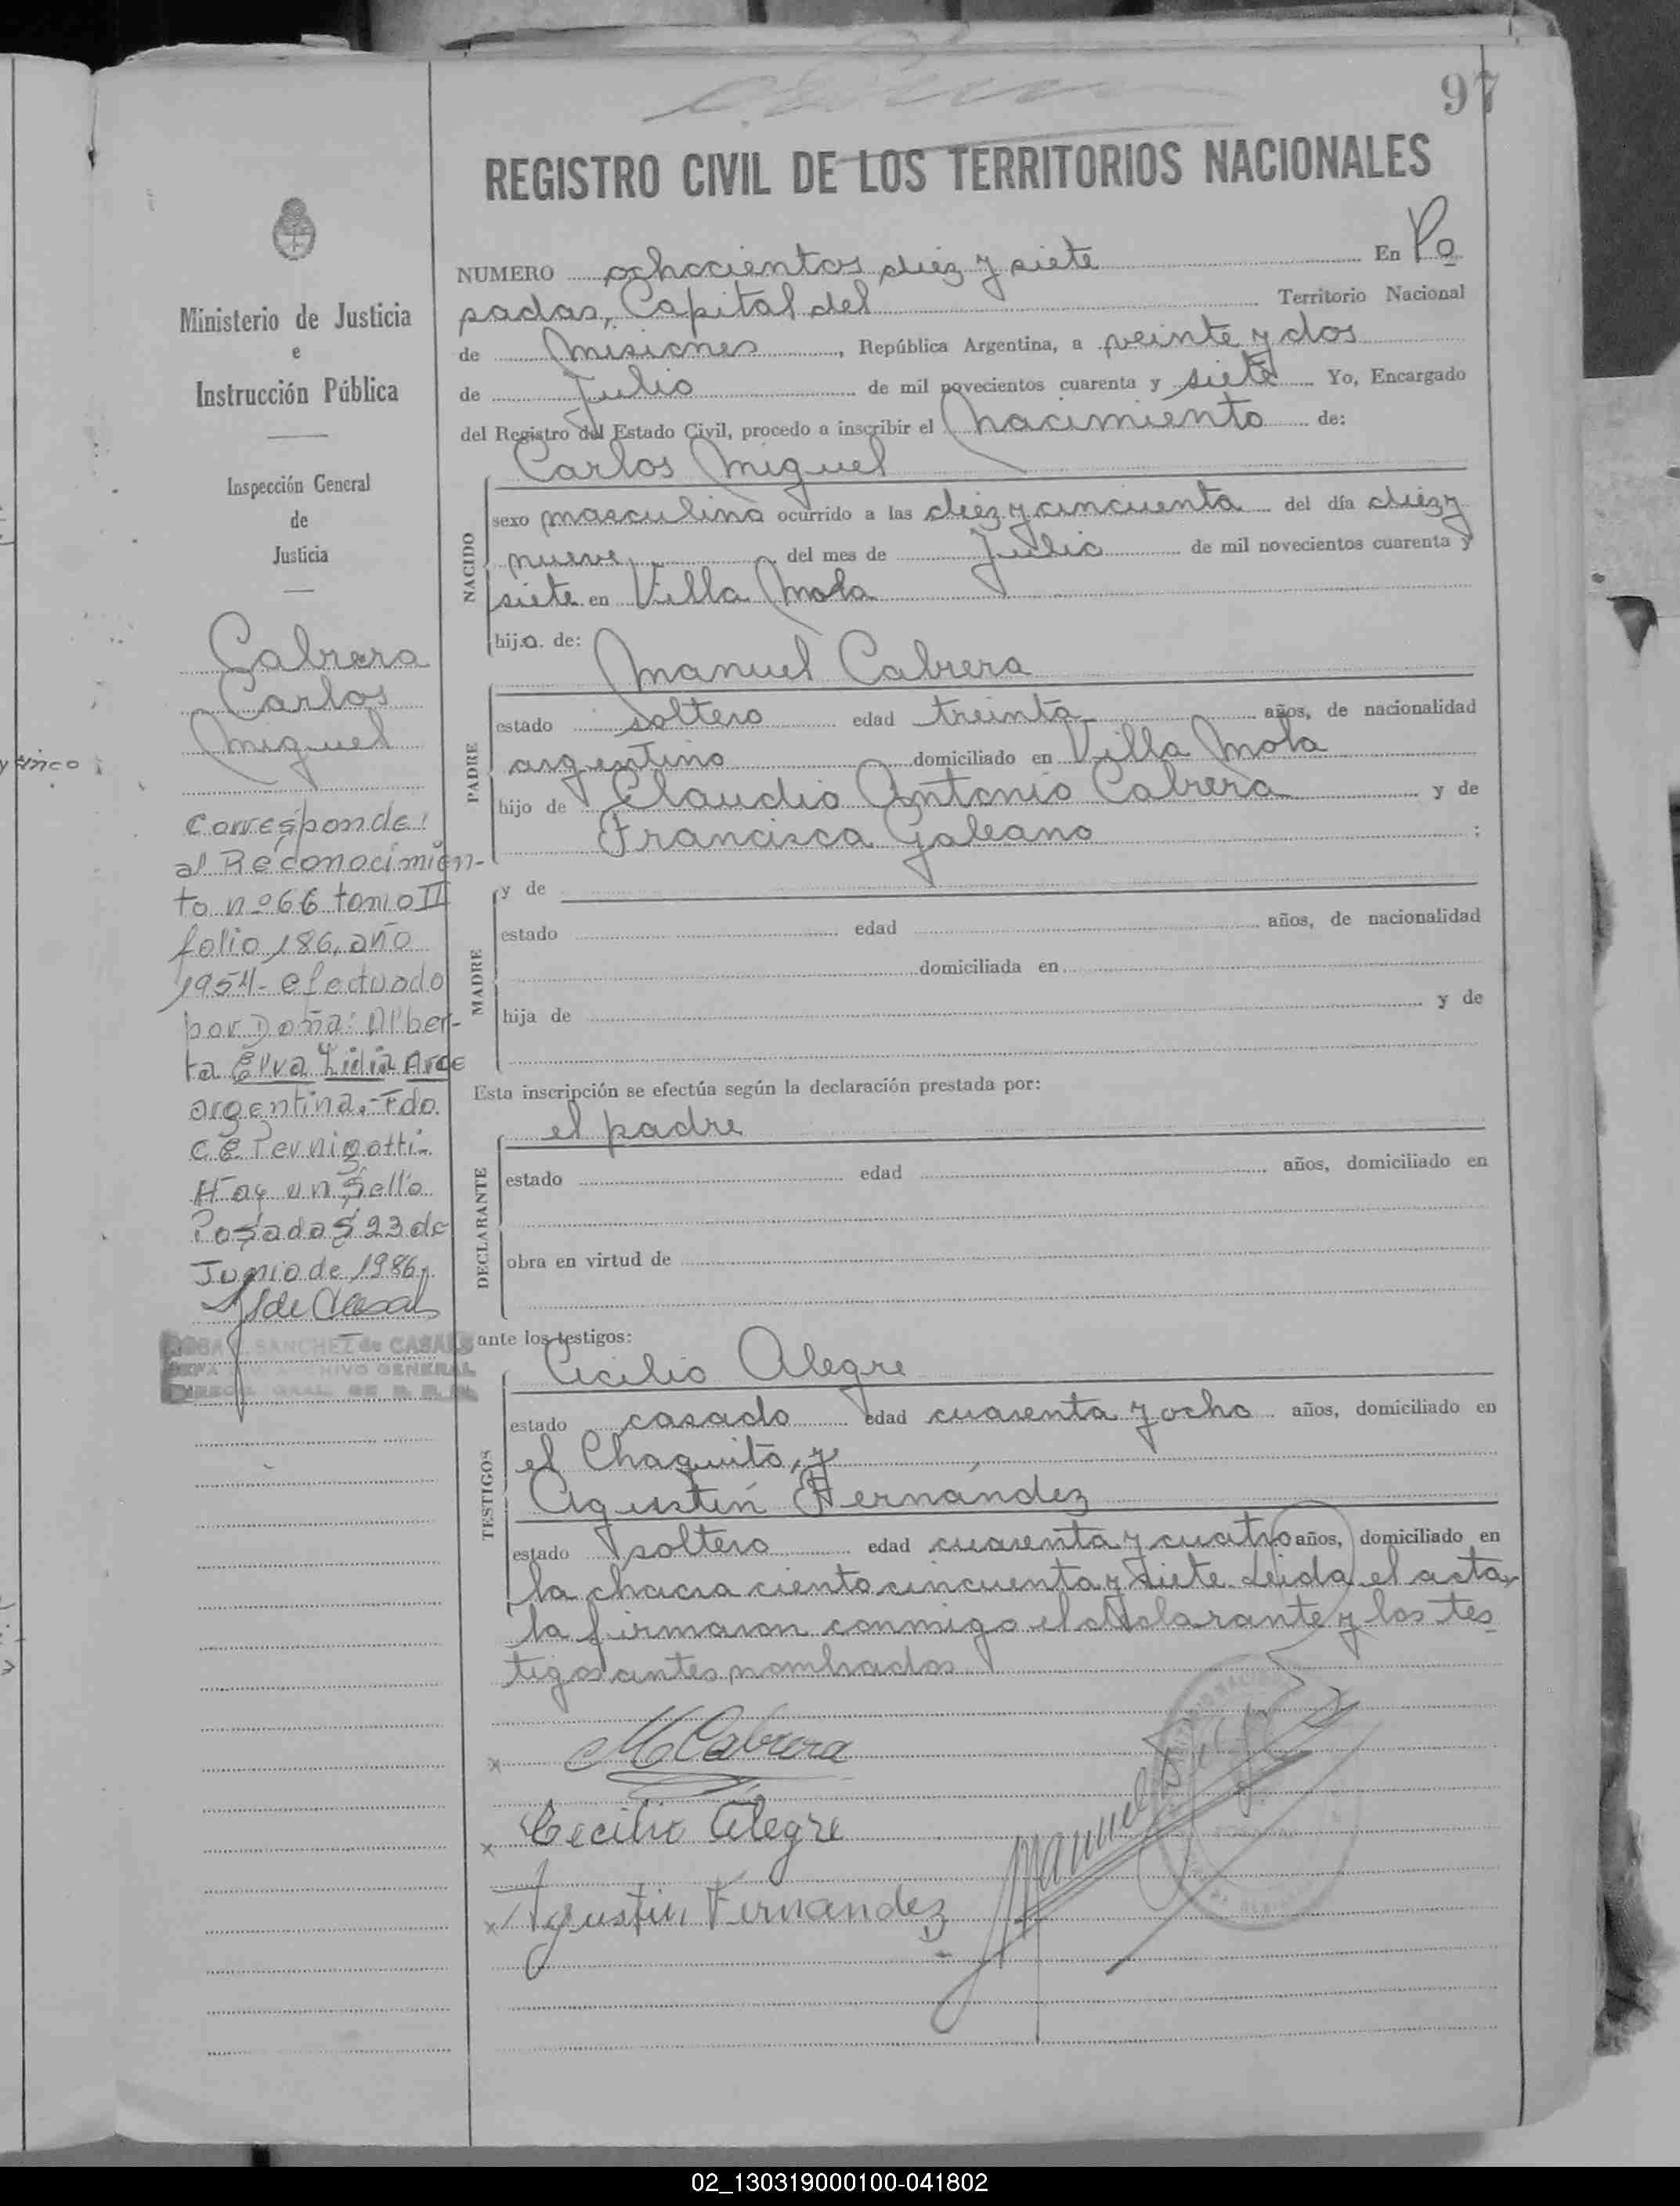 97
REGISTRO CIVIL DE LOS TERRITORIOS NACIONALES
NUMERO ochocientos diez y siete En Po
sadas, Capital del Territorio Nacional
de Misiones, República Argentina, a veinte y dos
de Julio de mil novecientos cuarenta y siete Yo, Encargado
del Registro del Estado Civil, procedo a inscribir el nacimiento de:
Carlos Miguel
NACIDO
sexo masculino ocurrido a las diez y cincuenta del día diez y
nueve del mes de Julio de mil novecientos cuarenta y
siete en Villa Mola
hijo de:
Manuel Cabrera
PADRE
estado soltero edad treinta años, de nacionalidad
argentino domiciliado en Villa Mola
hijo de Claudio Antonio Cabrera y de
Francisca Galeano ;
MADRE
y de
estado edad años, de nacionalidad
domiciliada en
hija de y de
Esta inscripción se efectúa según la declaración prestada por:
el padre
DECLARANTE
estado edad años, domiciliado en
obra en virtud de
ante los testigos:
Cecilio Alegre
TESTIGOS
estado casado edad cuarenta y ocho años, domiciliado en
el Chaquito, y
Agustín Hernández
estado soltero edad cuarenta y cuatro años, domiciliado en
la chacra ciento cincuenta y siete. Leida el acta,
la firmaron conmigo el declarante y los tes
tigos antes nombrados
x MCabrera
x Cecilio Alegre
x Agustin Fernandez
Manuel
Ministerio de Justicia
e
Instrucción Pública
Inspección General
de
Justicia
Cabrera
Carlos
Miguel
Corresponde:
al Reconocimien-
to nº 66 tomo II
folio 186, año
1954- efectuado
por Doña: Alber-
ta Elva Lidia Arce
argentina.- Fdo.
C E Pernigotti-
Hay un Sello
Posadas 23 de
Junio de 1986.
SANCHEZ de CASALS
ARCHIVO GENERAL
02_130319000100-041802